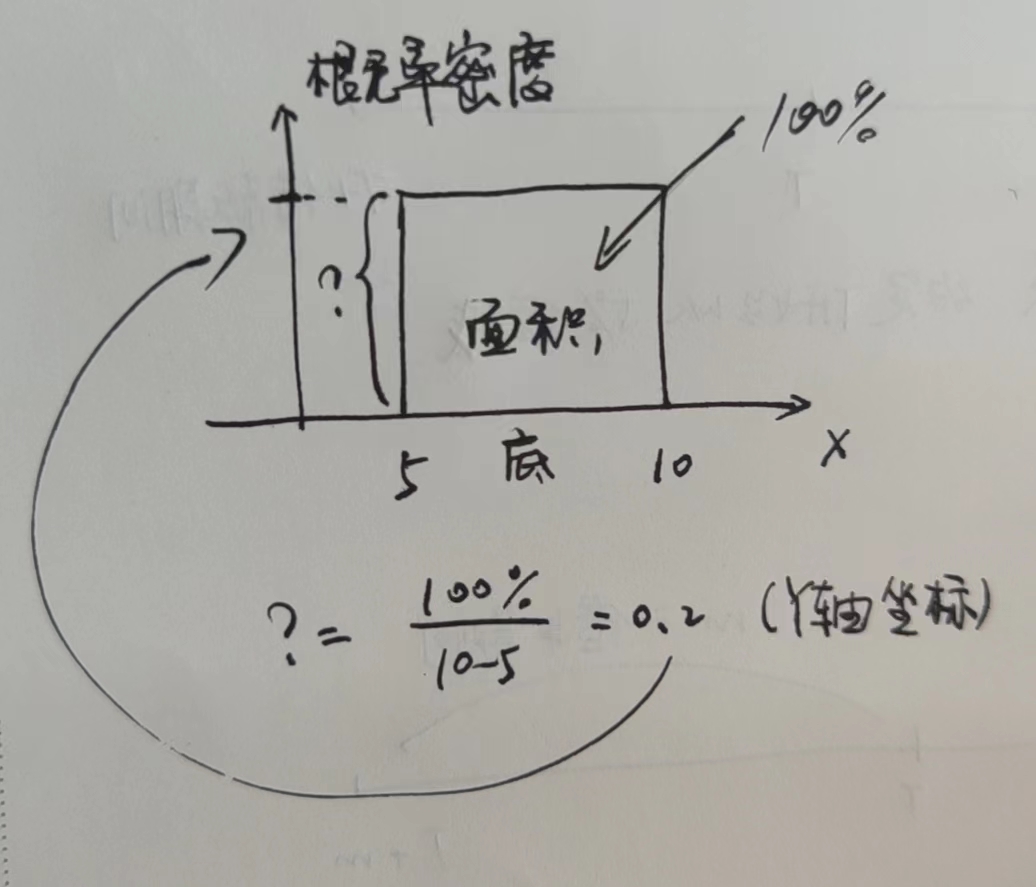 概率密度
100%
?
面积
5 底 10 X
? = 100% / 10-5 = 0.2 (Y轴坐标)